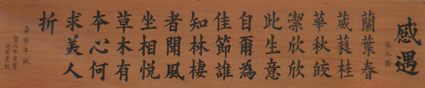 感遇
張九齡
蘭葉春
葳蕤桂
華秋皎
潔欣欣
此生意
自爾為
佳節誰
知林棲
者聞風
坐相悅
草木有
本心何
求美人
折